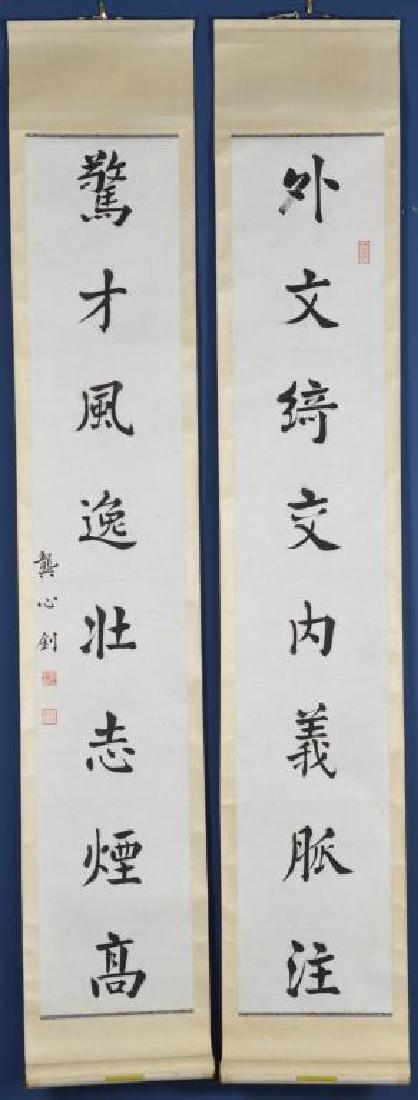 外文綺交內義脈注
驚才風逸壯志煙高
龔心釗